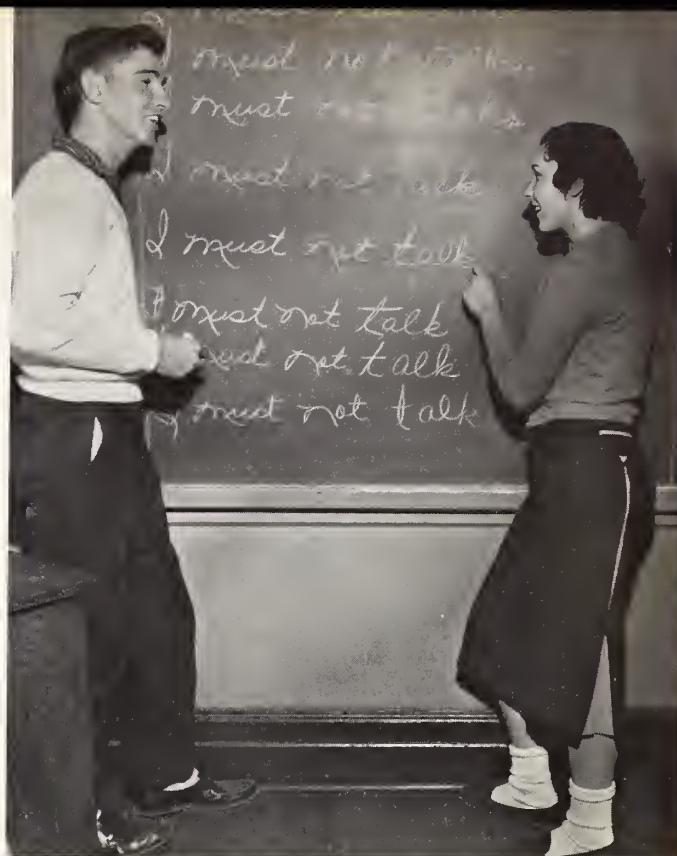 I must not
must not
I must not talk
I must not talk
I must not talk
must not talk
I must not talk